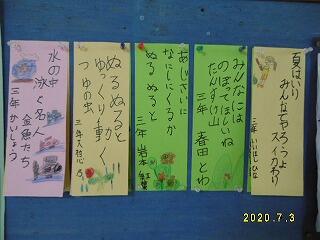 夏はいり
みんなでやろうよ
スイカわり
三年
みんなには
のぼってほしいね
たんすけ山
三年 春田とわ
あじさいに
なにしにくるか
ぬるぬると
三年 岩本
ぬるぬると
ゆっくり動く
つゆの虫
三年
水の中
泳ぐ名人
金魚たち
三年 かいしょう
2020.7.3